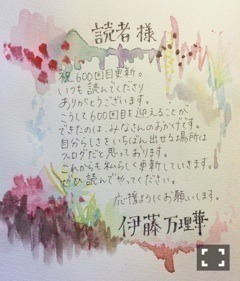 読者様
祝600回目更新。
いつも読んでくださり
ありがとうございます。
こうして600回目を迎えることが
できたのは、みなさんのおかげです。
自分らしさをいちばん出せる場所は
ブログだと思っております。
これからも私らしく更新していきます。
ぜひ読んでやってください。
応援よろしくお願いします。
伊藤万理華